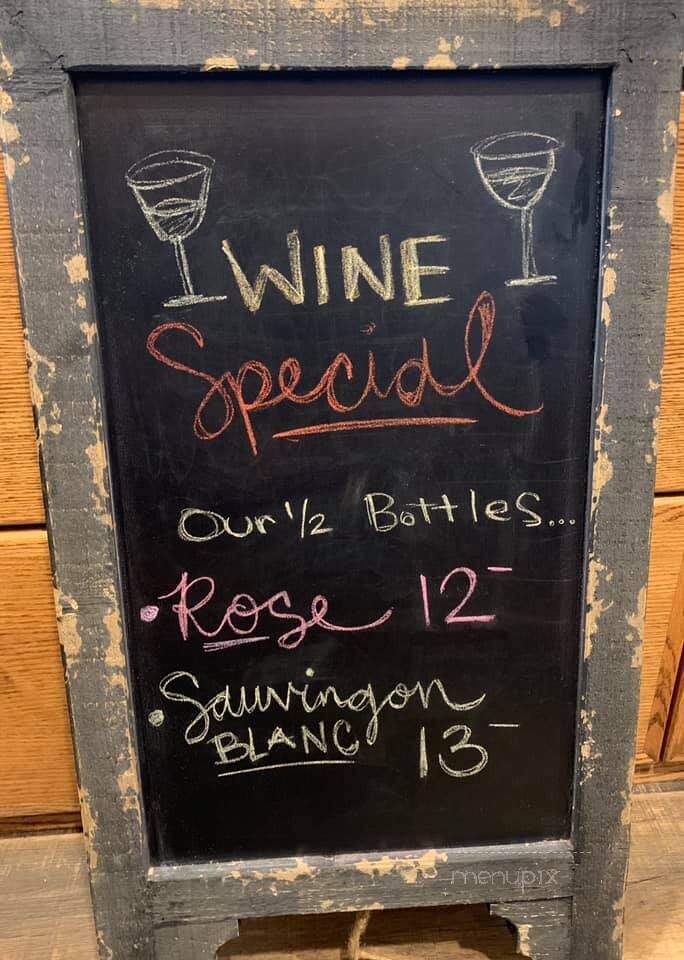 WINE
Special
Our 1/2 Bottles...
• Rose 12-
• Sauvingon
BLANC 13-
menupix